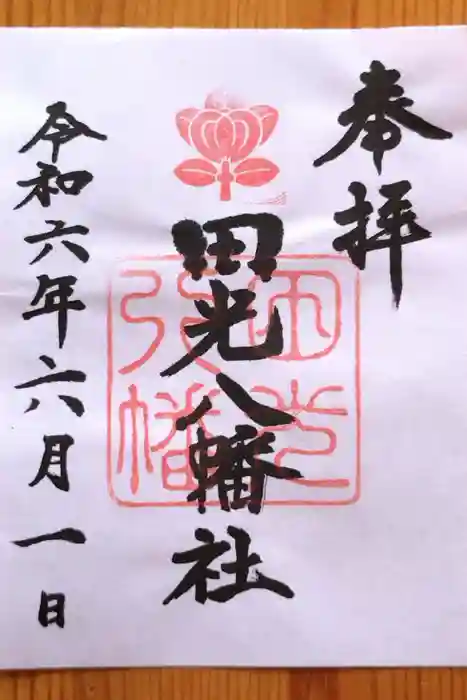 奉拝
田光八幡社
田光
八幡
令和六年六月一日